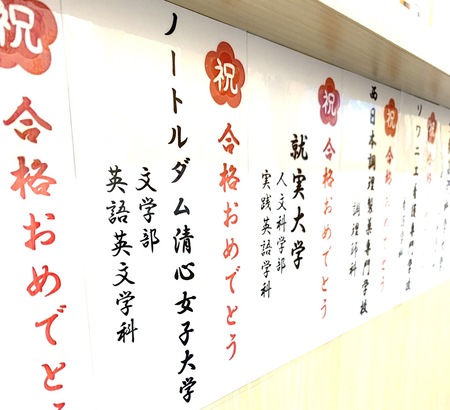 祝
合格おめでとう
ノートルダム清心女子大学
文学部
英語英文学科
祝
合格おめでとう
就実大学
人文科学部
実践英語学科
祝
合格おめでとう
西日本調理製菓専門学校
調理師科
祝
合格
ソワニエ看護専門学校
祝
合格